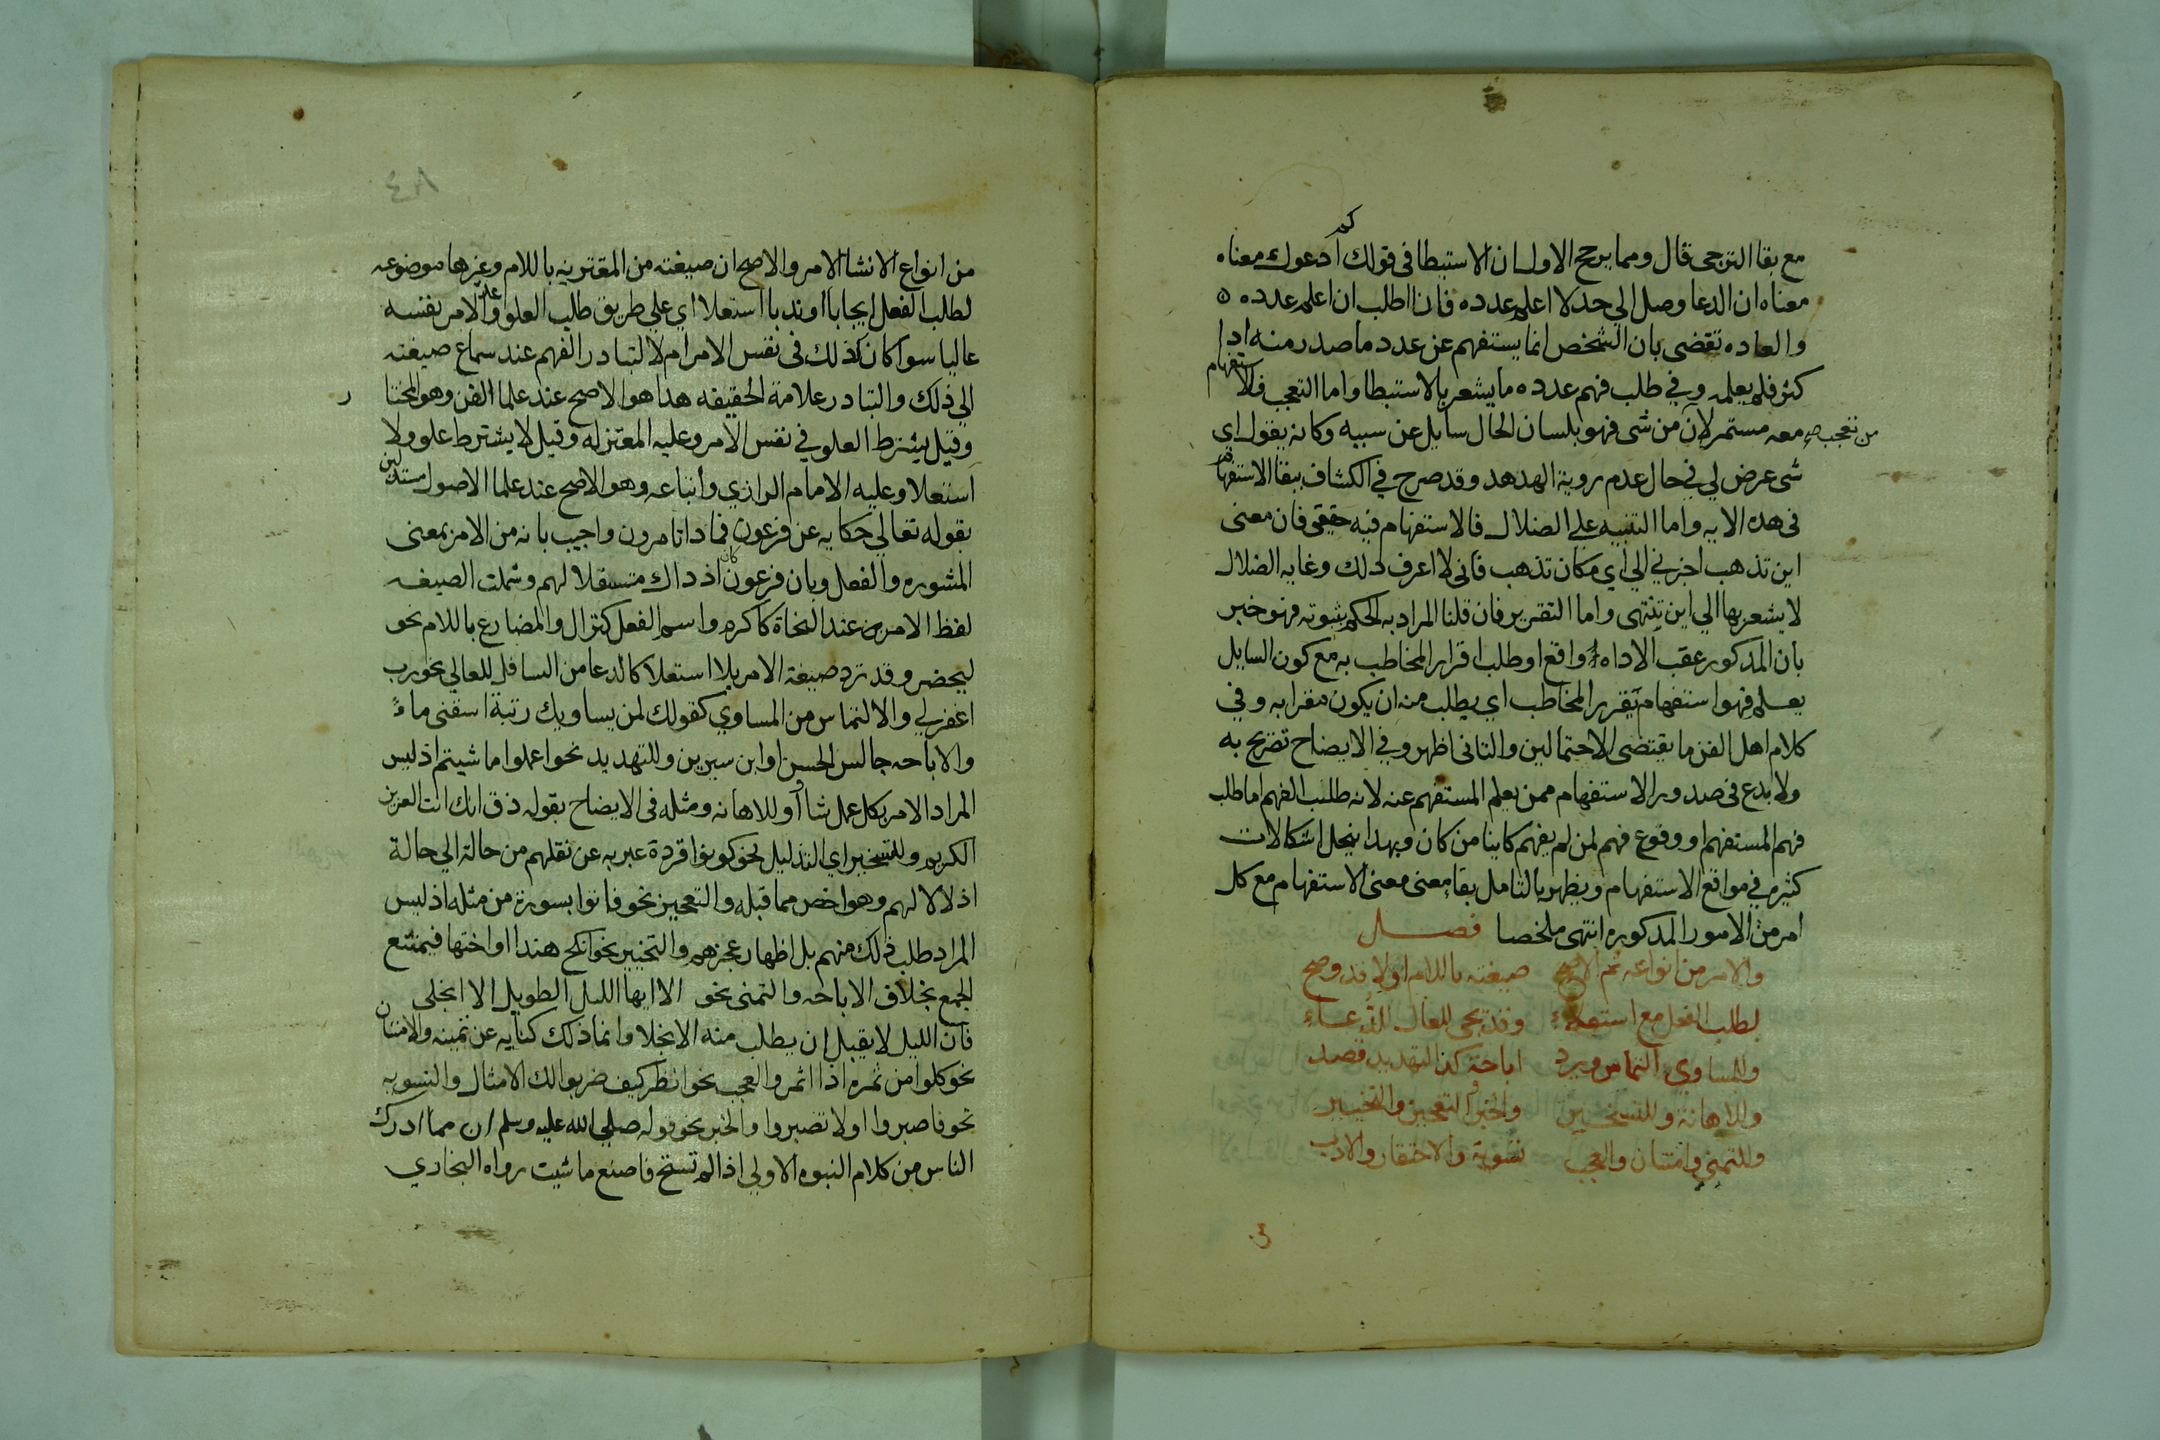 كم
مع بقا الترجى قال ومما يرجح الاول ان الاستبطا فى قولك أدعوك معناه
معناه ان الدعا وصل الي حد لا اعلم عدده فانا اطلب ان اعلم عدده ٥
والعاده تقضى بان الشخص انما يستفهم عن عدد ما صدر منه اذا
كثر فلم يعلمه وفي طلب فهم عدده ما يشعر بالاستبطا واما التعجب فالاستفهام
معه مستمر لان من تعجب من شى فهو بلسان الحال سايل عن سببه وكانه يقول اي
شى عرض لي في حال عدم روية الهدهد وقد صرح في الكشاف ببقا الاستفهام
فى هده الايه واما التنبيه على الضلال فالاستفهام فيه حقيقى فان معنى
اين تذهب اخبرني الي اي مكان تذهب فانى لا اعرف دلك وغايه الضلال
لا يشعر بها الي اين تنتهى واما التقرير فان قلنا المراد به الحكم بثبوته فهو خبر
بان المدكور عقب الاداه واقع او طلب اقرار المخاطب به مع كون السايل
يعلم فهو استفهام يقرر المخاطب اي يطلب منه ان يكون مقرا به وفي
كلام اهل الفن ما يقتضى الاحتمالين والثانى اظهر وفي الايضاح تصريح به
ولا بدع فى صدور الاستفهام ممن يعلم المستفهم عنه لانه طلب الفهم اما طلب
فهم المستفهم او وقوع فهم لمن لم يفهم كاينا من كان وبهدا ينحل اشكالات
كثيره في مواقع الاستفهام ويظهر بالتامل بقا معنى معنى الاستفهام مع كل
امر من الامور المدكوره انتهى ملخصا فصل
والامر من انواعه ثم الاصح صيغته باللام اولا قد وضح
لطلب الفعل مع استعلاء وقد يجى للعال الدعاء
والمساوي التماس ويرد اباحة كذا لتهديد قصد
وللاهانة وللتسخير والخبر والتعجيز والتخيير
وللتمنى وامتنان والعجب تسوية والاحتقار والادب
من انواع الانشا الامر والاصح ان صيغته من المقترنه باللام وغيرها موضوعه
لطلب الفعل ايجابا او ندبا استعلا اي على طريق طلب العلو وعد الامر نفسه
عاليا سوا كان كذلك فى نفس الامر ام لا لتبادر الفهم عند سماع صيغته
الي ذلك والتبادر علامة الحقيقه هذا هو الاصح عند علما الفن وهو المختار
وقيل يشترط العلو في نفس الامر وعليه المعتزله وقيل لا يشترط علو ولا
استعلا وعليه الامام الرازي وأتباعه وهو الاصح عند علما الاصول مستدلين
بقوله تعالي حكايه عن فرعون فماداتامرون واجيب بانه من الامر بمعنى
المشوره والفعل وبان فرعون كان اذ داك متسفلا لهم وشملت الصيغه
لفظ الامر من عند النحاة كاكرم واسم الفعل كنزال والمضارع باللام نحو
ليحضر وقد ترد صيغة الامر بلا استعلا كالدعا من السافل للعالي نحو رب
اغفر لي والالتماس من المساوي كقولك لمن يساويك رتبة اسقنى ماءً
والاباحه جالس الحسن او ابن سيرين وللتهديد نحو اعملوا ما شيتم اذ ليس
المراد الامر بكل عمل شاأو وللاهانه ومثله فى الايضاح بقوله ذق انك انت العزيز
الكريم وللتسخير اي التذليل نحو كونوا قردة عبر به عن نقلهم من حالة الي حالة
اذلالا لهم وهو اخص مما قبله والتعجيز نحو فاتوا بسورة من مثله اذ ليس
المراد طلب ذلك منهم بل اظهار عجزهم والتخيير نحو انكح هندا او اختها فيمتنع
الجمع بخلاف الاباحه والتمنى نحو الا ايها الليل الطويل الا انجلى
فان الليل لا يقبل ان يطلب منه الانجلا وانما ذلك كنايه عن تمنيه والامتنان
نحو كلوا من ثمره اذا اثمر والعجب نحو انظر كيف ضربوا لك الامثال والتسويه
نحو فاصبروا اولا تصبروا والخبر نحو قوله صلي الله عليه وسلم ان مما ادرك
الناس من كلام النبوه الاولي اذا لم تستح فاصنع ما شيت رواه البخاري